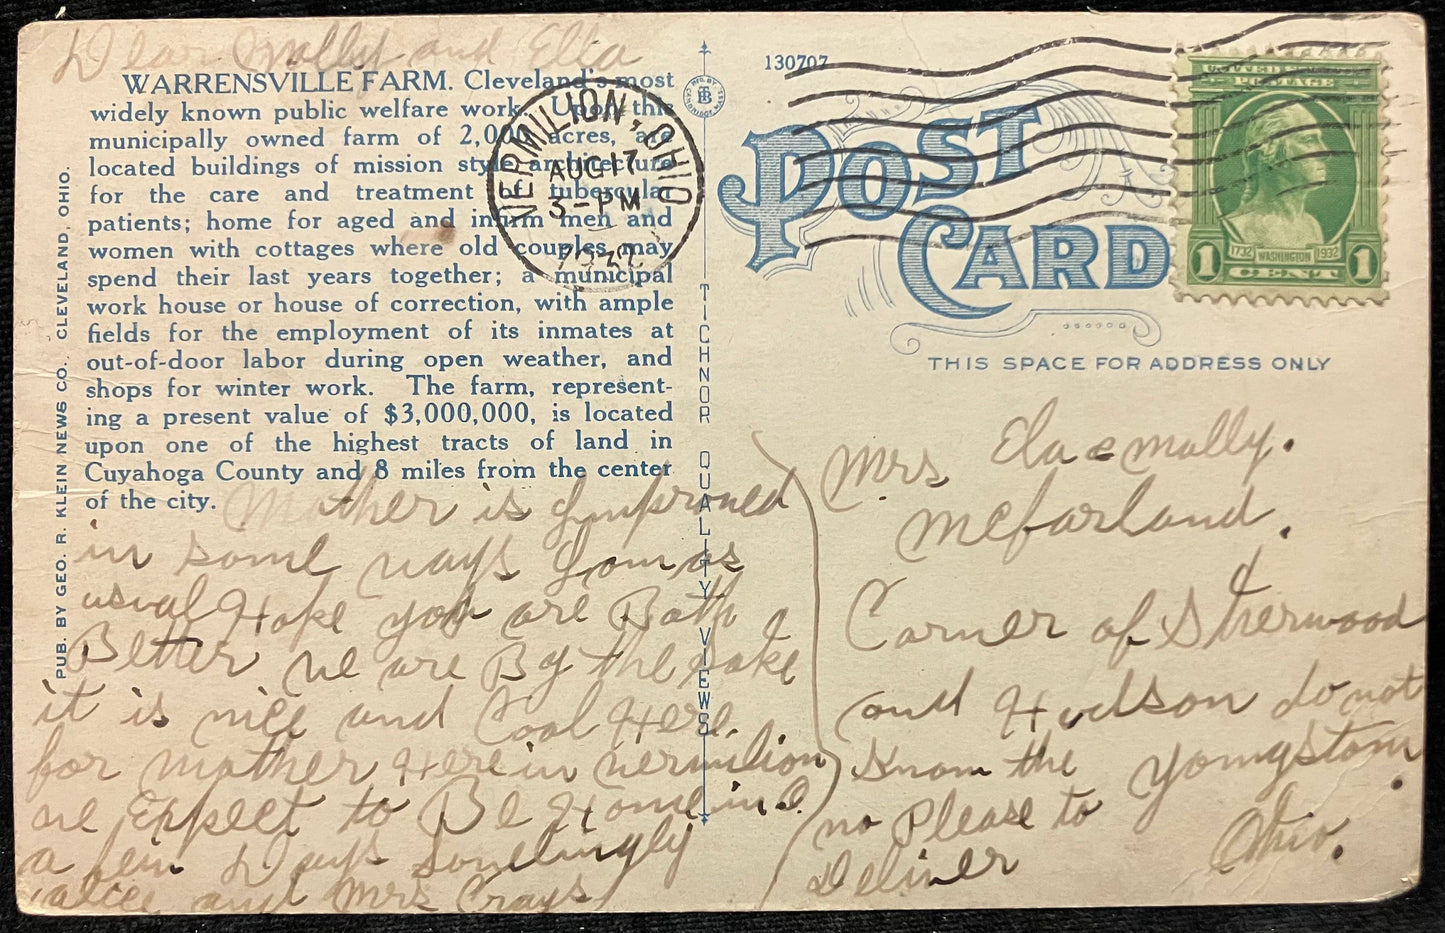 Dear Molly and Ella
WARRENSVILLE FARM. Cleveland's most
widely known public welfare work. Upon this
municipally owned farm of 2,000 acres, are
located buildings of mission style architecture
for the care and treatment tubercular
patients; home for aged and infirm men and
women with cottages where old couples may
spend their last years together; a municipal
work house or house of correction, with ample
fields for the employment of its inmates at
out-of-door labor during open weather, and
shops for winter work. The farm, represent-
ing a present value of $3,000,000, is located
upon one of the highest tracts of land in
Cuyahoga County and 8 miles from the center
of the city.
Mother is Improved
in some ways
usual Hope you are Both
Better we are By the Lake
it is nice and Cool Here.
for mother Here in vermilion
we Expect to Be Home in
a few Days
alice and Mrs Crays
PUB. BY GEO. R. KLEIN NEWS CO., CLEVELAND, OHIO.
TICHNOR QUALITY VIEWS
130707
VERMILION, OHIO
AUG 17
3-PM
1932
POST
CARD
THIS SPACE FOR ADDRESS ONLY
UNITED STATES
POSTAGE
1732 WASHINGTON 1932
1 CENT 1
Mrs Molly.
McFarland.
Corner of Sherwood
and Hudson do not
Know the
no Please to
Deliver
Youngstown
Ohio.